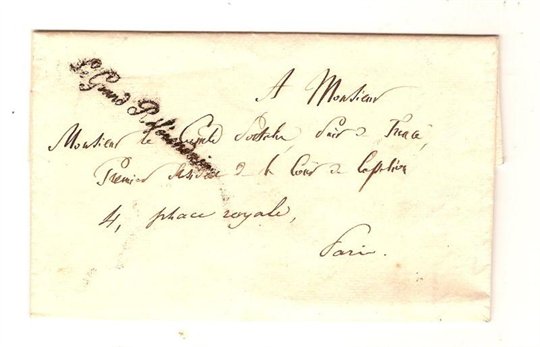 Le Grand Référendaire
A Monsieur
Monsieur le Comte Portalis, Pair de France,
Premier Président de la Cour de Cassation
4, place royale,
Paris.